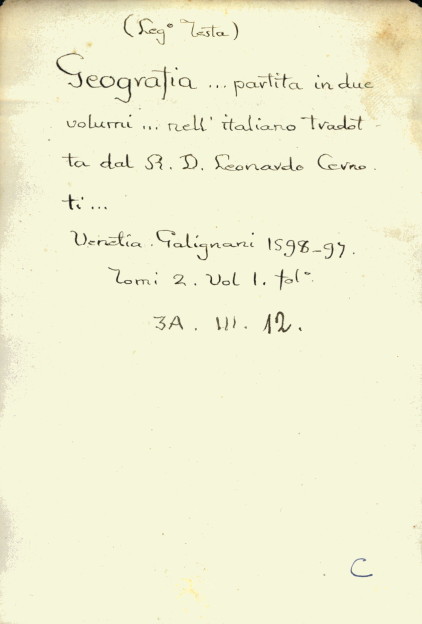 (Leg° Testa)
Geografia ... partita in due
volumi ... nell' italiano tradot-
ta dal R. D. Leonardo Cerno.
ti...
Venetia. Galignani 1598-97.
Tomi 2. Vol 1. fol°.
3A. III. 12.
C